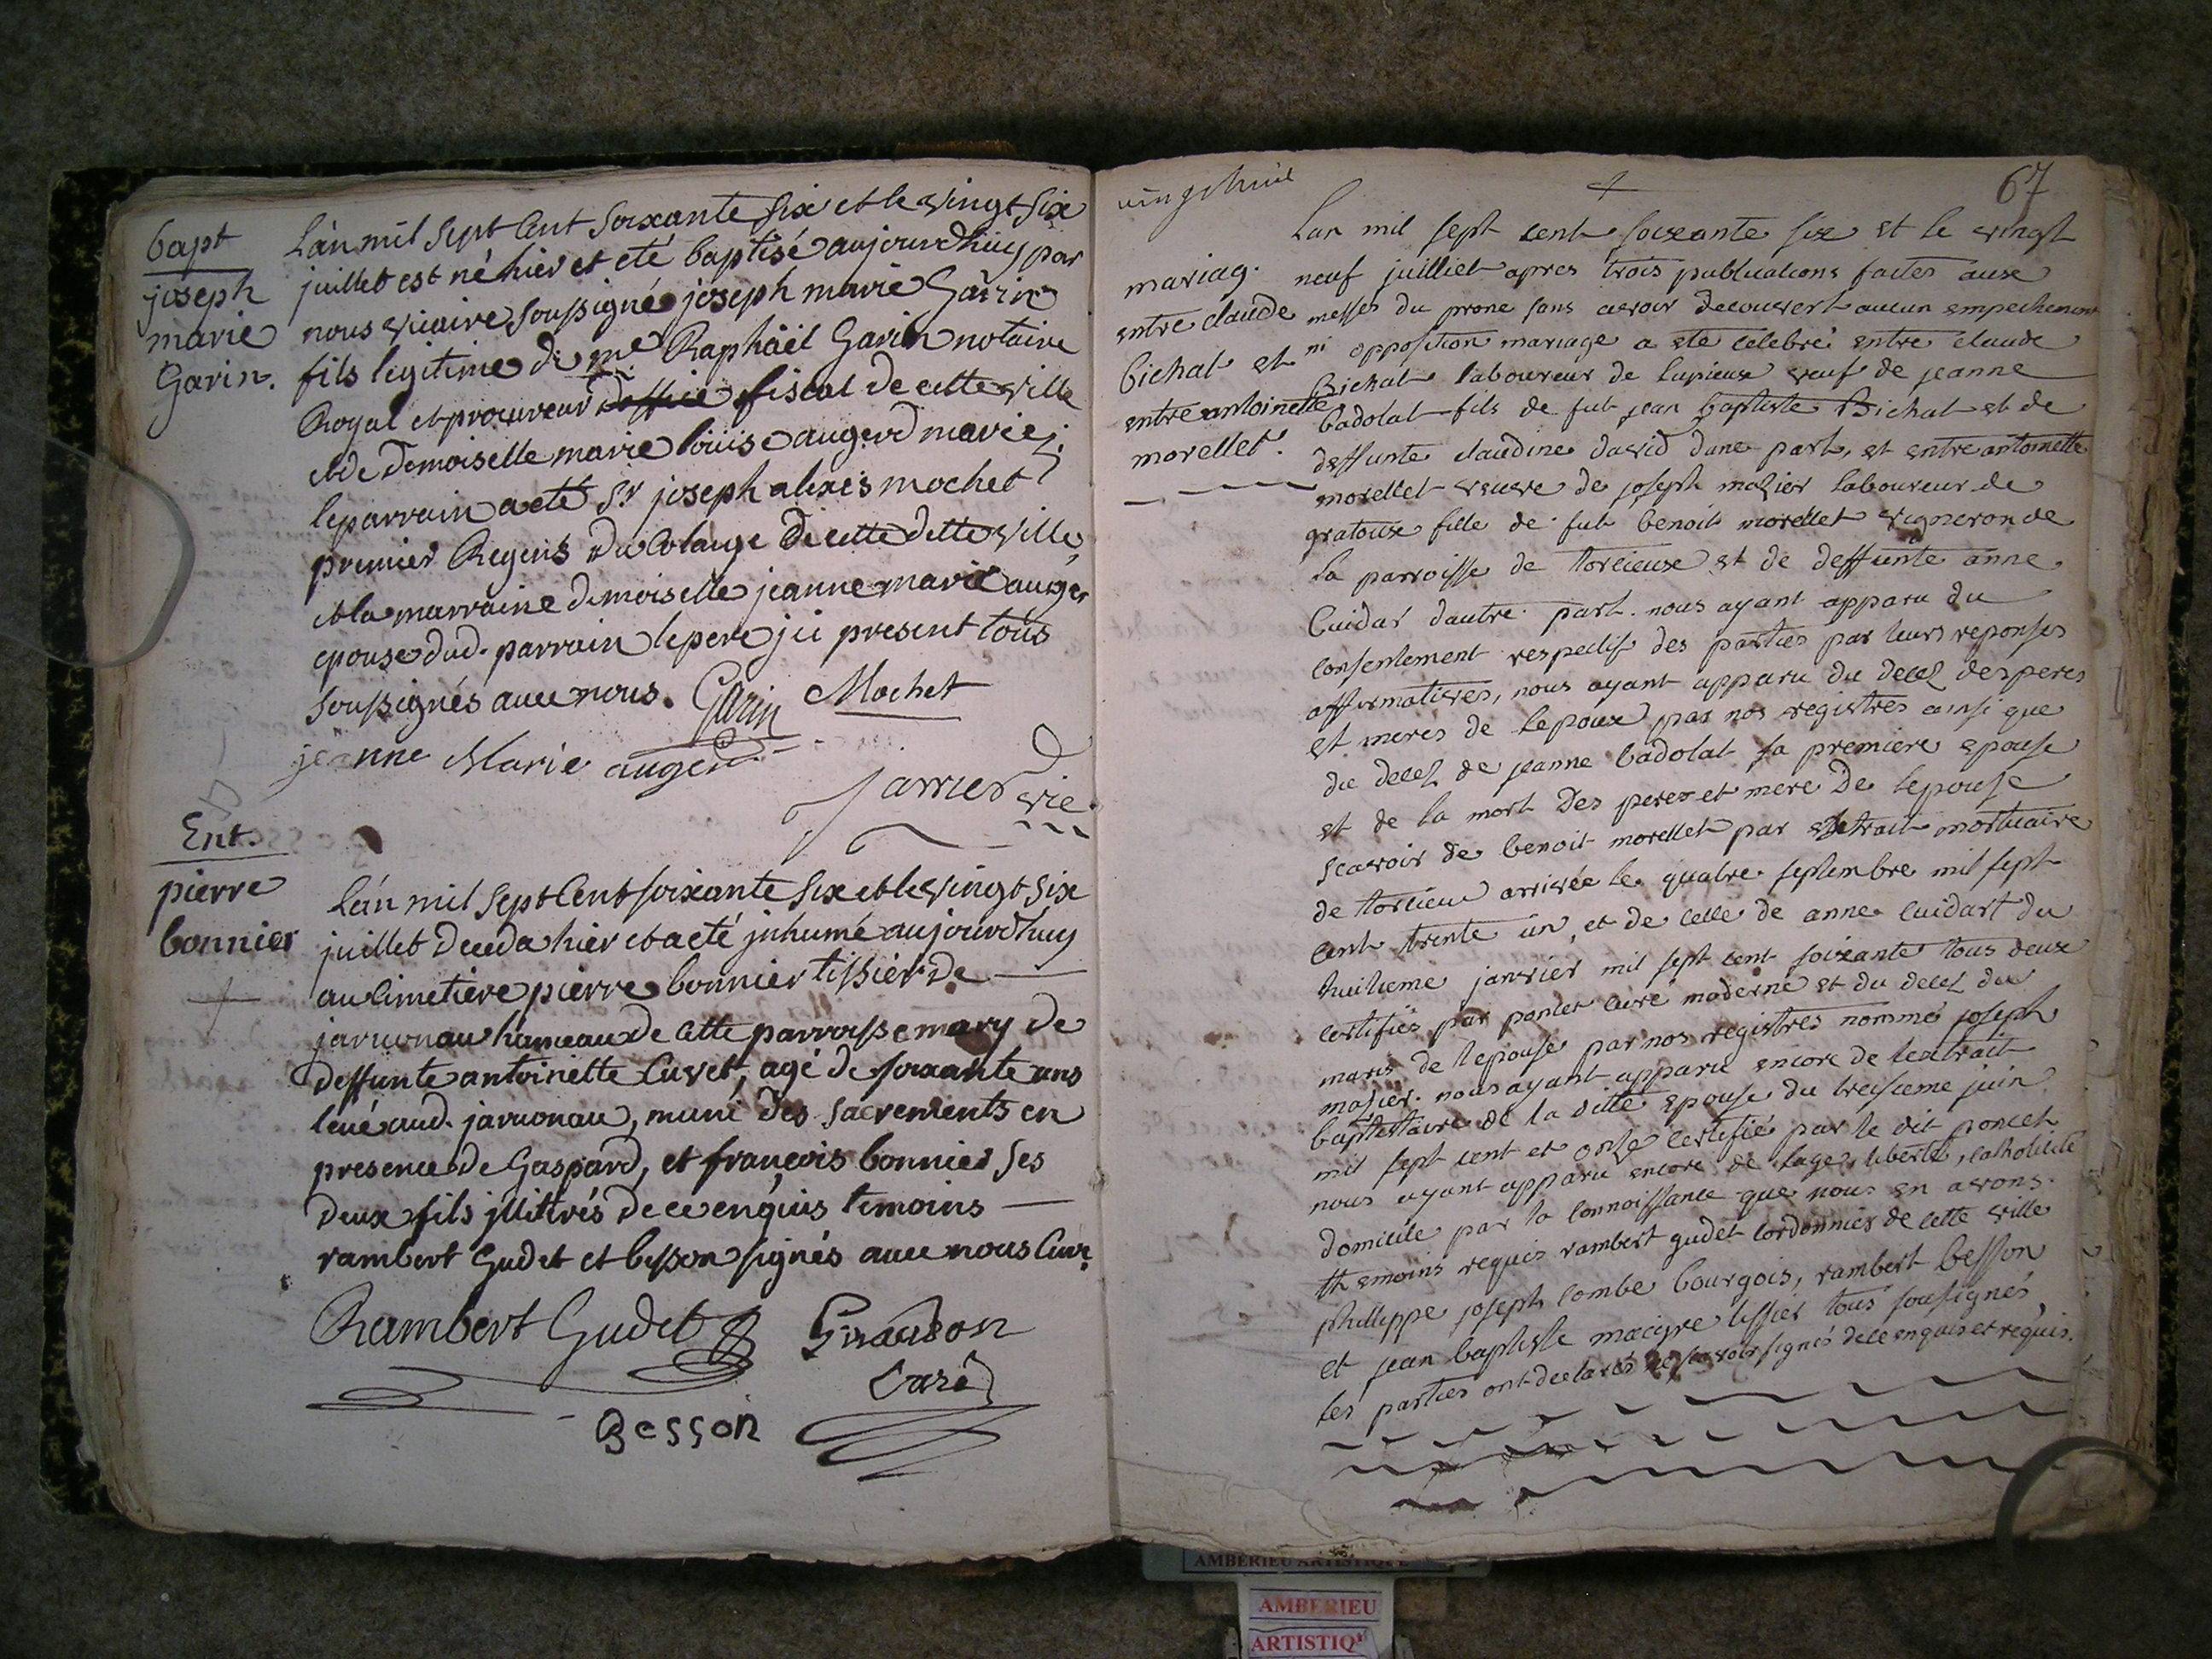 bapt
joseph
marie
Garin.
Lán mil sept Cent soixante six et le vingt six
juillet est né hier et eté baptisé aujourdhuy par
nous vicaire soussigné joseph marie Garin
fils legitime de me Raphäel Garin notaire
Royal et procureur d'office fiscal de cette ville
et de Demoiselle marie loüise augerd mariés.
le parrain a eté Sr joseph alexis mochet
premier Regent du Colange De cette ditte ville,
et la marraine demoiselle jeanne marie auger
epouse dud. parrain le pere ici present tous
soussignés avec nous. Garin Mochet
jeanne Marie augerd
Jarrier vic.
Ent.
pierre
bonnier
Lán mil sept Cent soixante six et le vingt six
juillet deceda hier et a eté jnhumé aujourdhuy
au Cimetiere pierre bonnier tissier de
jarvonau hameau de cette parroisse mary de
deffunte antoinette Cuvet, agé de soixante ans
aud. jarvonau, muni des sacrements en
presence de Gaspard, et françois bonnier ses
deux fils jllitérés de ce enquis temoins
rambert Gudet et besson signés avec nous Curé.
Rambert Gudet Giraudon
Curé
Besson
vingthuit
67
mariag.
entre claude
bichat et
entre antoinette
morellet.
Lan mil sept cent soixante six et le vingt
neuf juilliet apres trois publications faites aux
messes du prone sans avoir decouvert aucun empechement
ni opposition mariage a eté celebré entre claude
Bichat laboureur de Lupieux veuf de jeanne
badolat fils de fut jean baptiste Bichat et de
deffunte claudine david dune part, et entre antoinette
morellet veuve de joseph mazier laboureur de
gratoux fille de fut benoit morellet vigneron de
la parroisse de torcieux et de deffunte anne
Cuidar dautre part. nous ayant apparu du
consentement respectif des parties par leurs reponses
affirmatives, nous ayant apparu du decez des peres
et meres de lepoux par nos registres ainsi que
du decez de jeanne badolat sa premiere epouse
et de la mort des peres et mere de lepouse
scavoir de benoit morellet par extrait mortuaire
de torcieu arrivée le quatre septembre mil sept
cent trente un, et de celle de anne cuidart du
huitieme janvier mil sept cent soixante tous deux
certifiés par poncet curé moderne et du decez du
maris de lepouse par nos registres nommé joseph
mazier. nous ayant apparu encore de lextrait
baptistaire de la ditte epouse du treisieme juin
mil sept cent et onze certifié par le dit poncet
nous ayant apparu encore de lage, liberté, catholicité
domicile par la connoissance que nous en avons.
themoins requis rambert gudet cordonnier de cette ville
philippe joseph combe bourgois, rambert besson
et jean baptiste tissier tous sousignés
les parties ont declarés ne scavoir signés de ce enquis et requis.
AMBERIEU ARTISTIQUE
AMBERIEU
ARTISTIQ